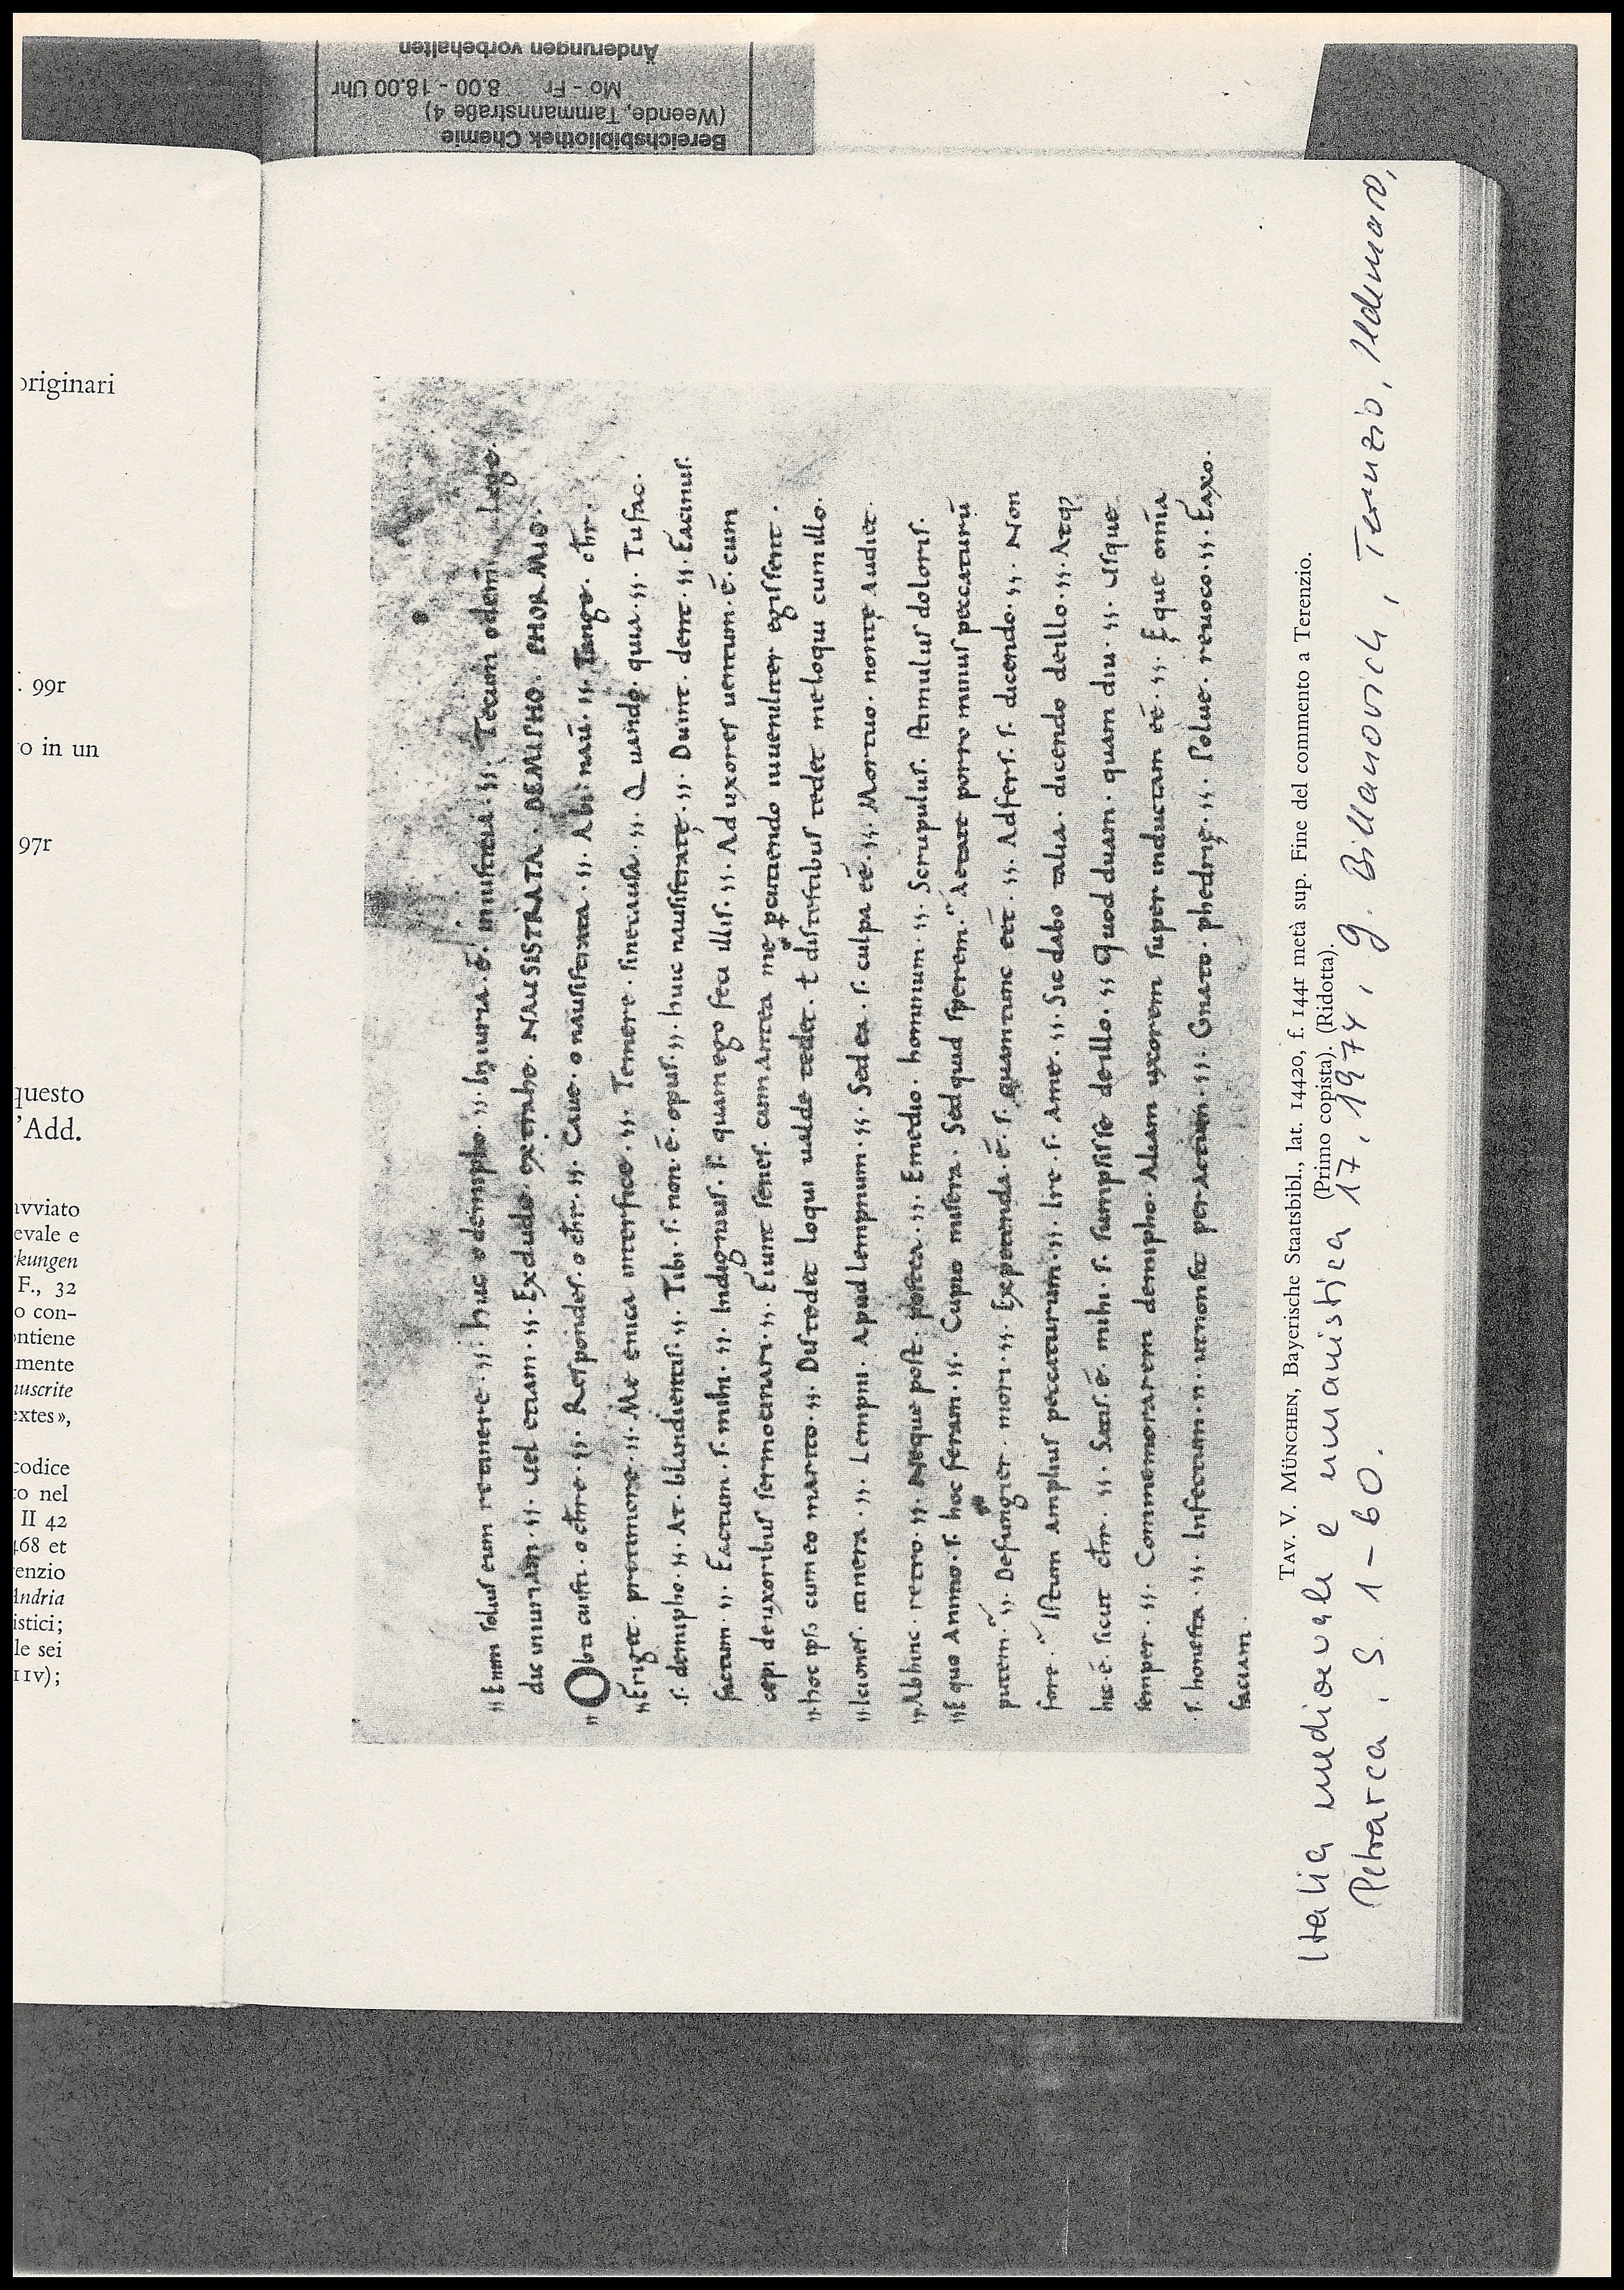 Änderungen vorbehalten
Mo - Fr 8.00 - 18.00 Uhr
(Weende, Tammannstraße 4)
Bereichsbibliothek Chemie
originari
. 99r
o in un
97r
questo
'Add.
avviato
evale e
kungen
F., 32
o con-
ontiene
mente
nuscrite
extes»,
codice
to nel
II 42
468 et
enzio
Andria
istici;
le sei
11v);
Enim solus eum retinere · huc o demipho · Iniuria · ē · iniustitia · Tecum o demi · Lege ·
dic iniuriam · uel etiam · Excludo · extraho · NAUSISTRATA · DEMIPHO · PHORMIO ·
Responides · o chr · Caue · o nausistrata · Abi · naū · Tango · chr ·
Eriget · Me enica interfice · Temere · sinecausa · Quando · quia · Tu fac ·
.s. demipho · At · blandientis · Tibi · s · non · ē · opus · huc nausistrate · Duint · dent · Facinus ·
factum · Factum · s · mihi · Indignius · s · quam ego feci illis · Ad uxores uentum · ē · cum
cepi de uxoribus sermocinari · Fiunt senes · cum antea me partiendo iuueniliter egissent ·
hoc ipso cum eo marito · Distedet loqui ualde tedet · t distristibus tedet me loqui cum illo ·
Itiones · itinera · Lempni · Apud lempnum · Sed ea · s · culpa eē · Mortuo · non te audiet ·
Abhinc · retro · Neque post · postea · E medio · hominum · Scrupulus · stimulus doloris ·
Equo animo · s · hoc feram · Cupio misera · Sed quid sperem · Aetate porro minus peccaturū
putem · Defungier · mori · Expetenda · ē · s · quamtunc eēt · Adfers · s · dicendo · Non
fore · Istum amplius peccaturum · Ire · s · Ame · Sic dabo talia · dicendo de illo · Atqȝ
hic · ē · sicut chr · Satis · ē · mihi · s · sumpsisse de illo · Quod duam · quam diu · Usque
semper · Commemorarem demipho · Aliam uxorem super inductam eē · Eque omīa
.s. honesta · Infectum · n · ut non sit per actum · Gnato · phedrię · Soluę · reuoco · Faxo ·
faciam ·
TAV. V. MÜNCHEN, Bayerische Staatsbibl., lat. 14420, f. 144r metà sup. Fine del commento a Terenzio.
(Primo copista). (Ridotta).
Italia medioevale e umanistica 17, 1974, G. Billanovich, Terenzio, Ildemaro,
Petrarca. S. 1 - 60.